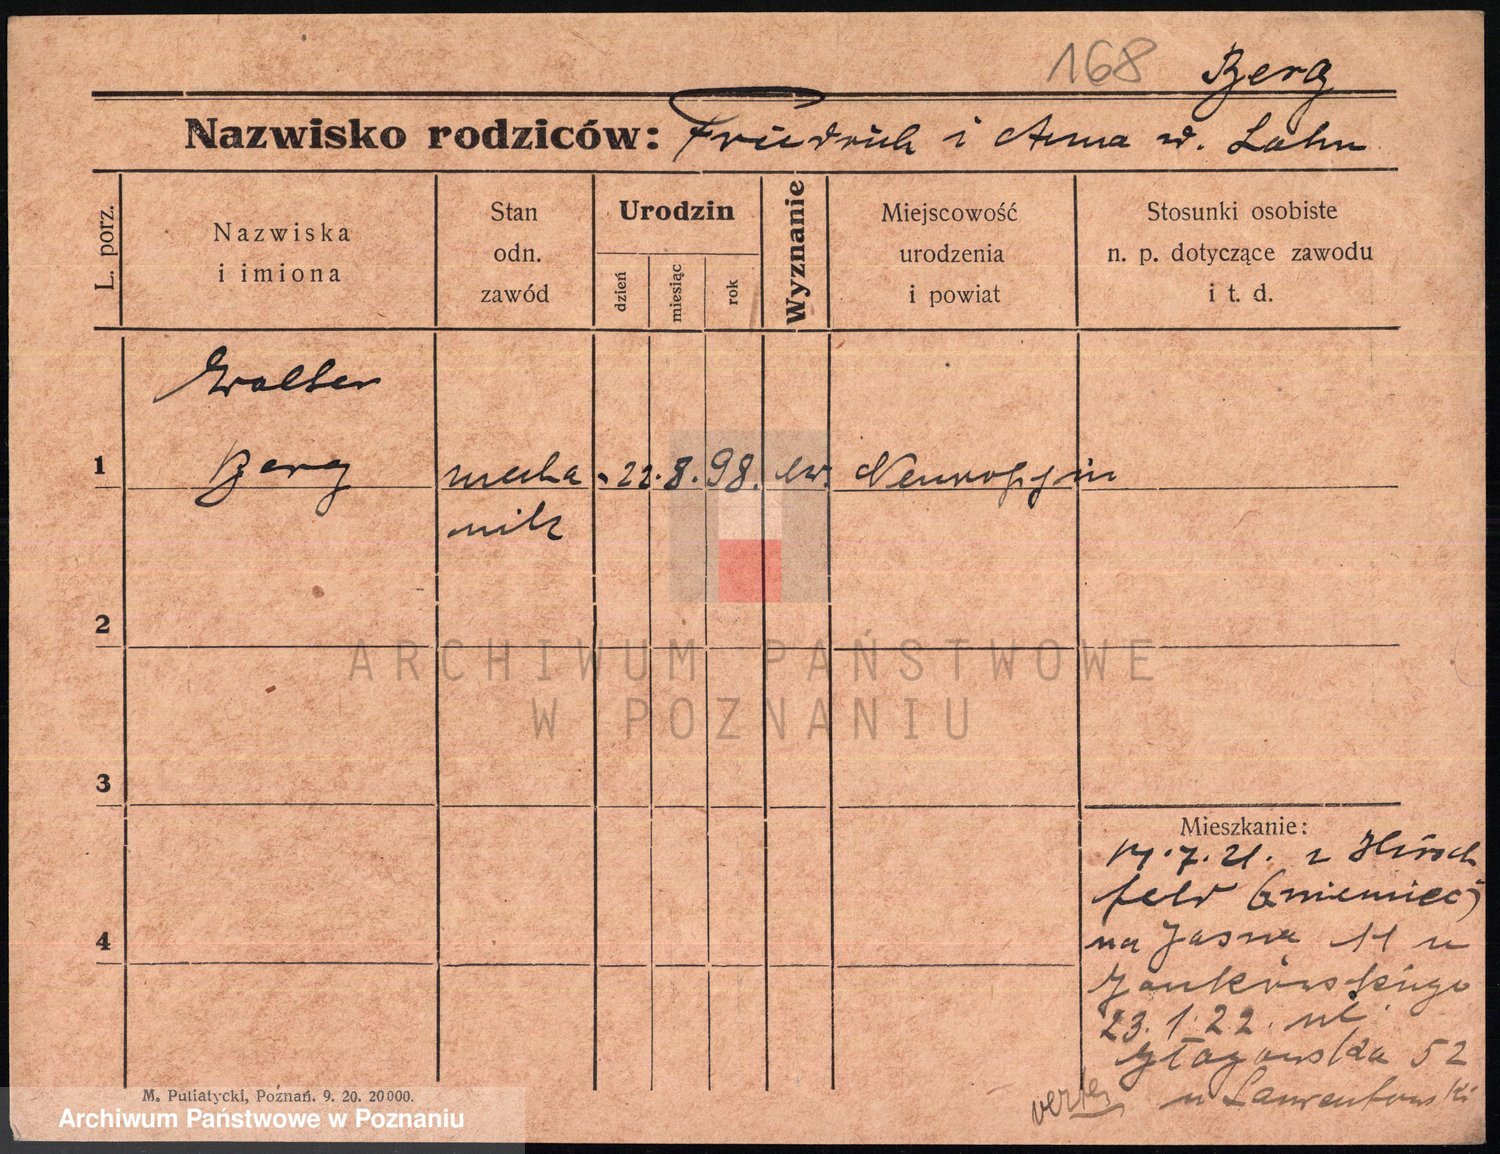 168 Berg
Nazwisko rodziców: Friedrich i Anna d. Lahn
L. porz.
Nazwiska
i imiona
Stan
odn.
zawód
Urodzin
dzień
miesiąc
rok
Wyznanie
Miejscowość
urodzenia
i powiat
Stosunki osobiste
n. p. dotyczące zawodu
i t. d.
Walter
1 Berg mecha 22. 8. 98. ew. Neuruppin
nik
2
ARCHIWUM PAŃSTWOWE
W POZNANIU
3
Mieszkanie:
7. 21. z Hirsch
feld (Niemiec)
4
na Jasna 11 u
Jankowskiego
23. 1. 22. ul.
Głogowska 52
u Laurentowski
verte
M. Putiatycki, Poznań. 9. 20. 20000.
Archiwum Państwowe w Poznaniu